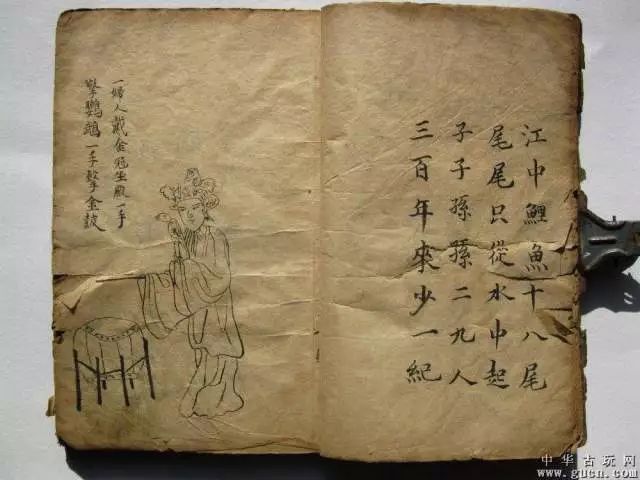 江中鯉魚十八尾
尾尾只從水中起
子子孫孫二九人
三百年來少一紀
一婦人戴金冠坐殿一手
擎鸚鵡一手擊金皷
中华古玩网
www.gucn.com